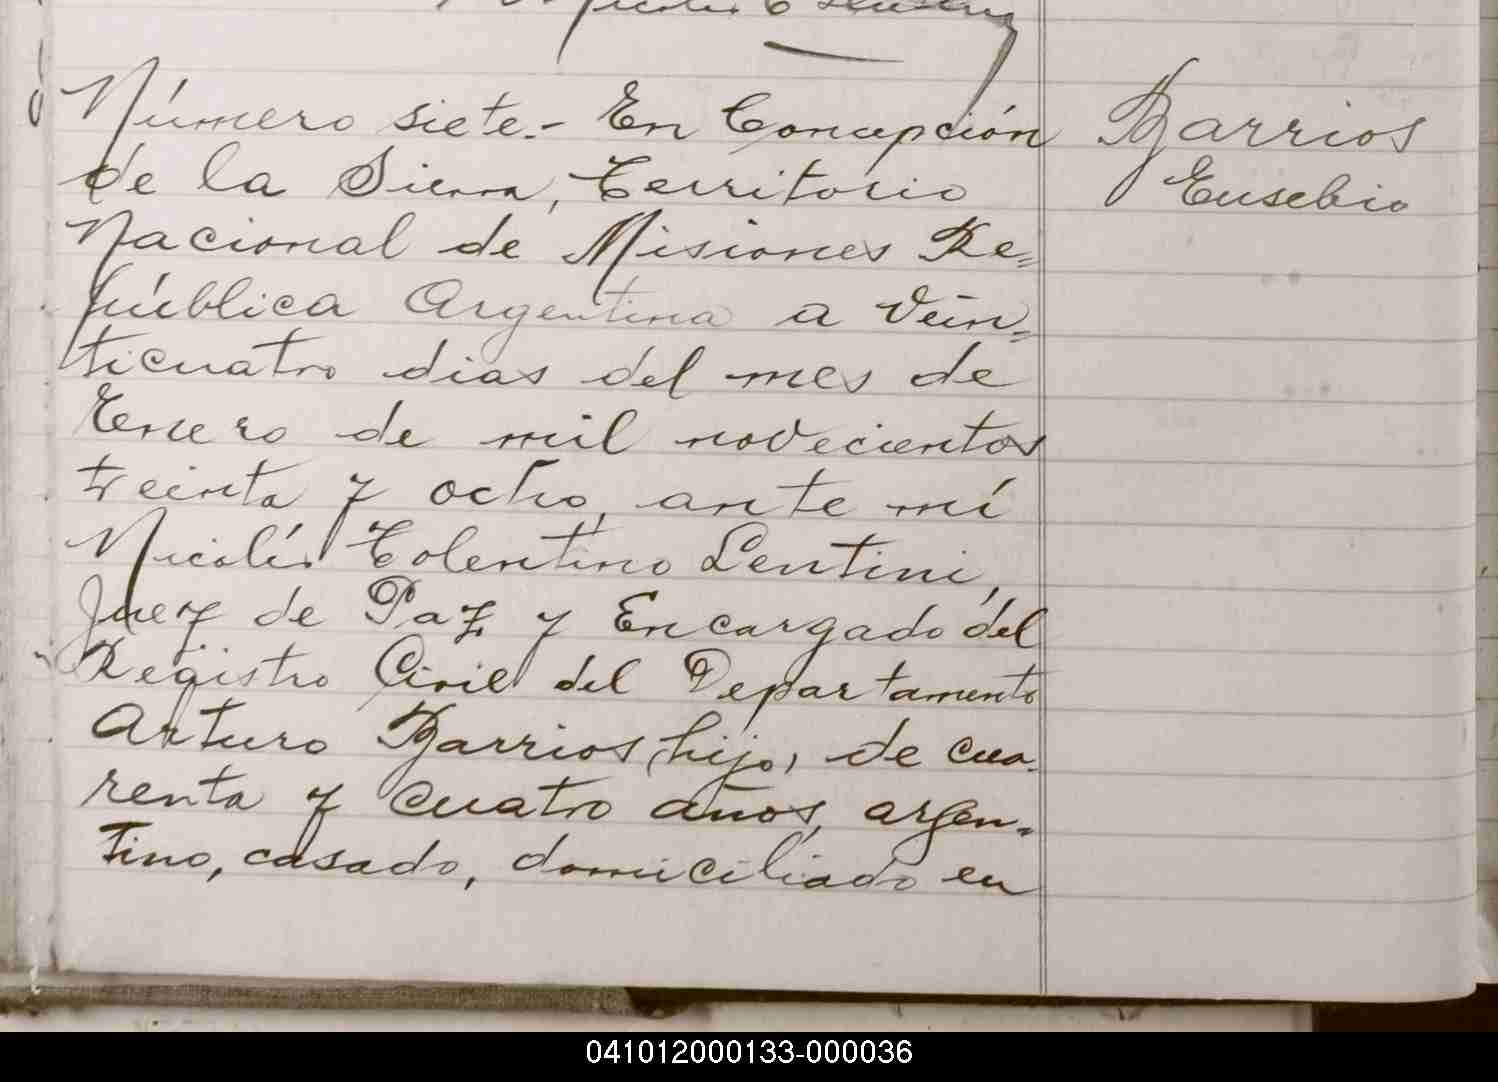 Número siete.- En Concepción
de la Sierra, Territorio
Nacional de Misiones Re=
pública Argentina a vein=
ticuatro dias del mes de
Enero de mil novecientos
treinta y ocho, ante mí
Nicolás Tolentino Lentini,
Juez de Paz y Encargado del
Registro Civil del Departamento
Arturo Barrios (hijo) de cua-
renta y cuatro años, argen-
tino, casado, domiciliado en
Barrios
Eusebio
041012000133-000036